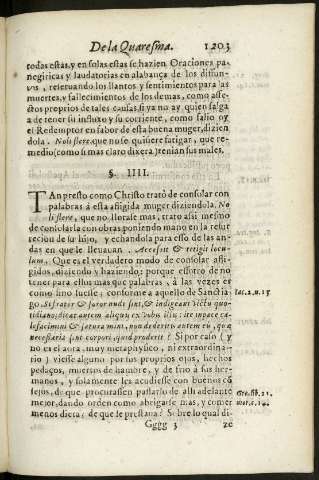 De la Quaresma. 1203
todas estas, y en solas estas se hazien Oraciones pa-
negiricas y laudatorias en alabança de los difun-
tos, reseruando los llantos y sentimientos para las
muertes, y fallecimientos de los demas, como afe-
ctos proprios de tales causas, si ya no ay quien salga
a detener su influxo y su corriente, como salio oy
el Redemptor en fabor de esta buena muger, dizien
dola. Noli flere, que no se quisiere fatigar, que re-
medio (como se mas claro dixera) tenian sus males.
§. IIII.
TAn presto como Christo tratò de consolar con
palabras à esta afligida muger diziendola. No
li flere, que no llorase mas, trato assi mesmo
de consolarla con obras poniendo mano en la resu-
reccion de su hijo, y echandola para esso de las an-
das en que le lleuauan. Accessit & tetigit locu-
lum, Que es el verdadero modo de consolar affli-
gidos, diziendo y haziendo: porque essotro de no
tener para ellos mas que palabras, à las vezes es
como sino fuesse; conforme a aquello de Sanctia-
go. Si frater & soror nudi sint, & indigeant victu quo-
tidiano; dicat autem aliquis ex vobis illis: ite in pace ca-
lefacimini & saturamini, non dederitis autem eis, quæ
necessaria sunt corpori, quid proderit? Si por caso (y
no es el aora, muy metaphysico, ni extraordina-
rio) viesse alguno por sus propios ojos, hechos
pedaços, muertos de hambre, y de frio à sus her-
manos, y solamente les acudiesse con buenos cõ
sejos, de que procurassen passarlo de alli adelante
mejor, dando orden como abrigarse mas, y comer
menos dieta: de que le prestaua? Sobre lo qual di-
Gggg 3 ze
Iac. 2. n. 15
Gre. lib. 21.
mor. c. 14.